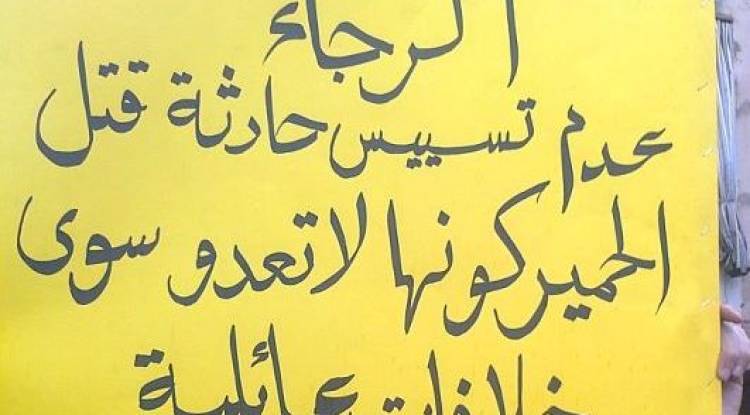 الرجاء
عدم تسييس حادثة قتل
الحمير كونها لا تعدو سوى
خلافات عائلية